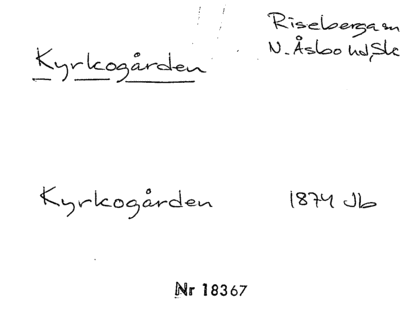 Riseberga sn
Kyrkogården N. Åsbo hd, Sk
Kyrkogården 1874 Jb
Nr 18367